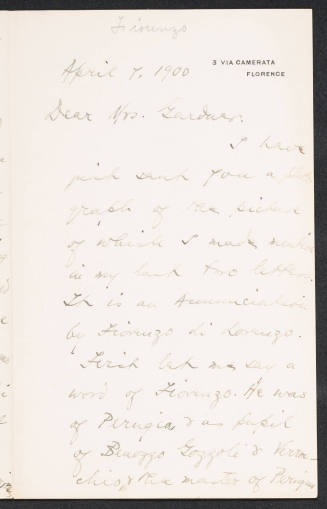 Fiorenzo
3 VIA CAMERATA
FLORENCE
April 7. 1900
Dear Mrs. Gardner,
I have
just sent you a photo-
graph of the picture
of which I made mention
in my last two letters.
It is an Annunciation
by Fiorenzo di Lorenzo.
First let me say a
word of Fiorenzo. He was
of Perugia, & a pupil
of Benozzo Gozzoli & Verroc-
chio, & the master of Perugino